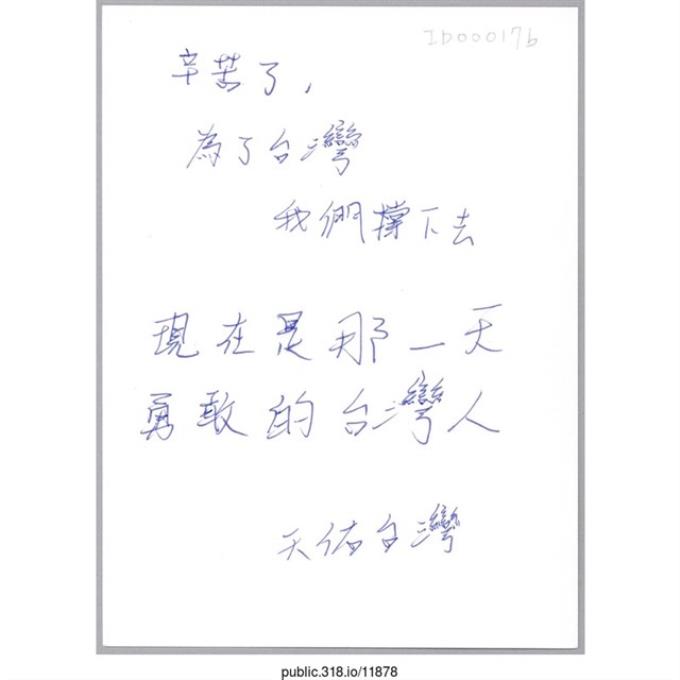 ID000176
辛苦了,
為了台灣
我們撐下去
現在是那一天
勇敢的台灣人
天佑台灣
public.318.io/11878